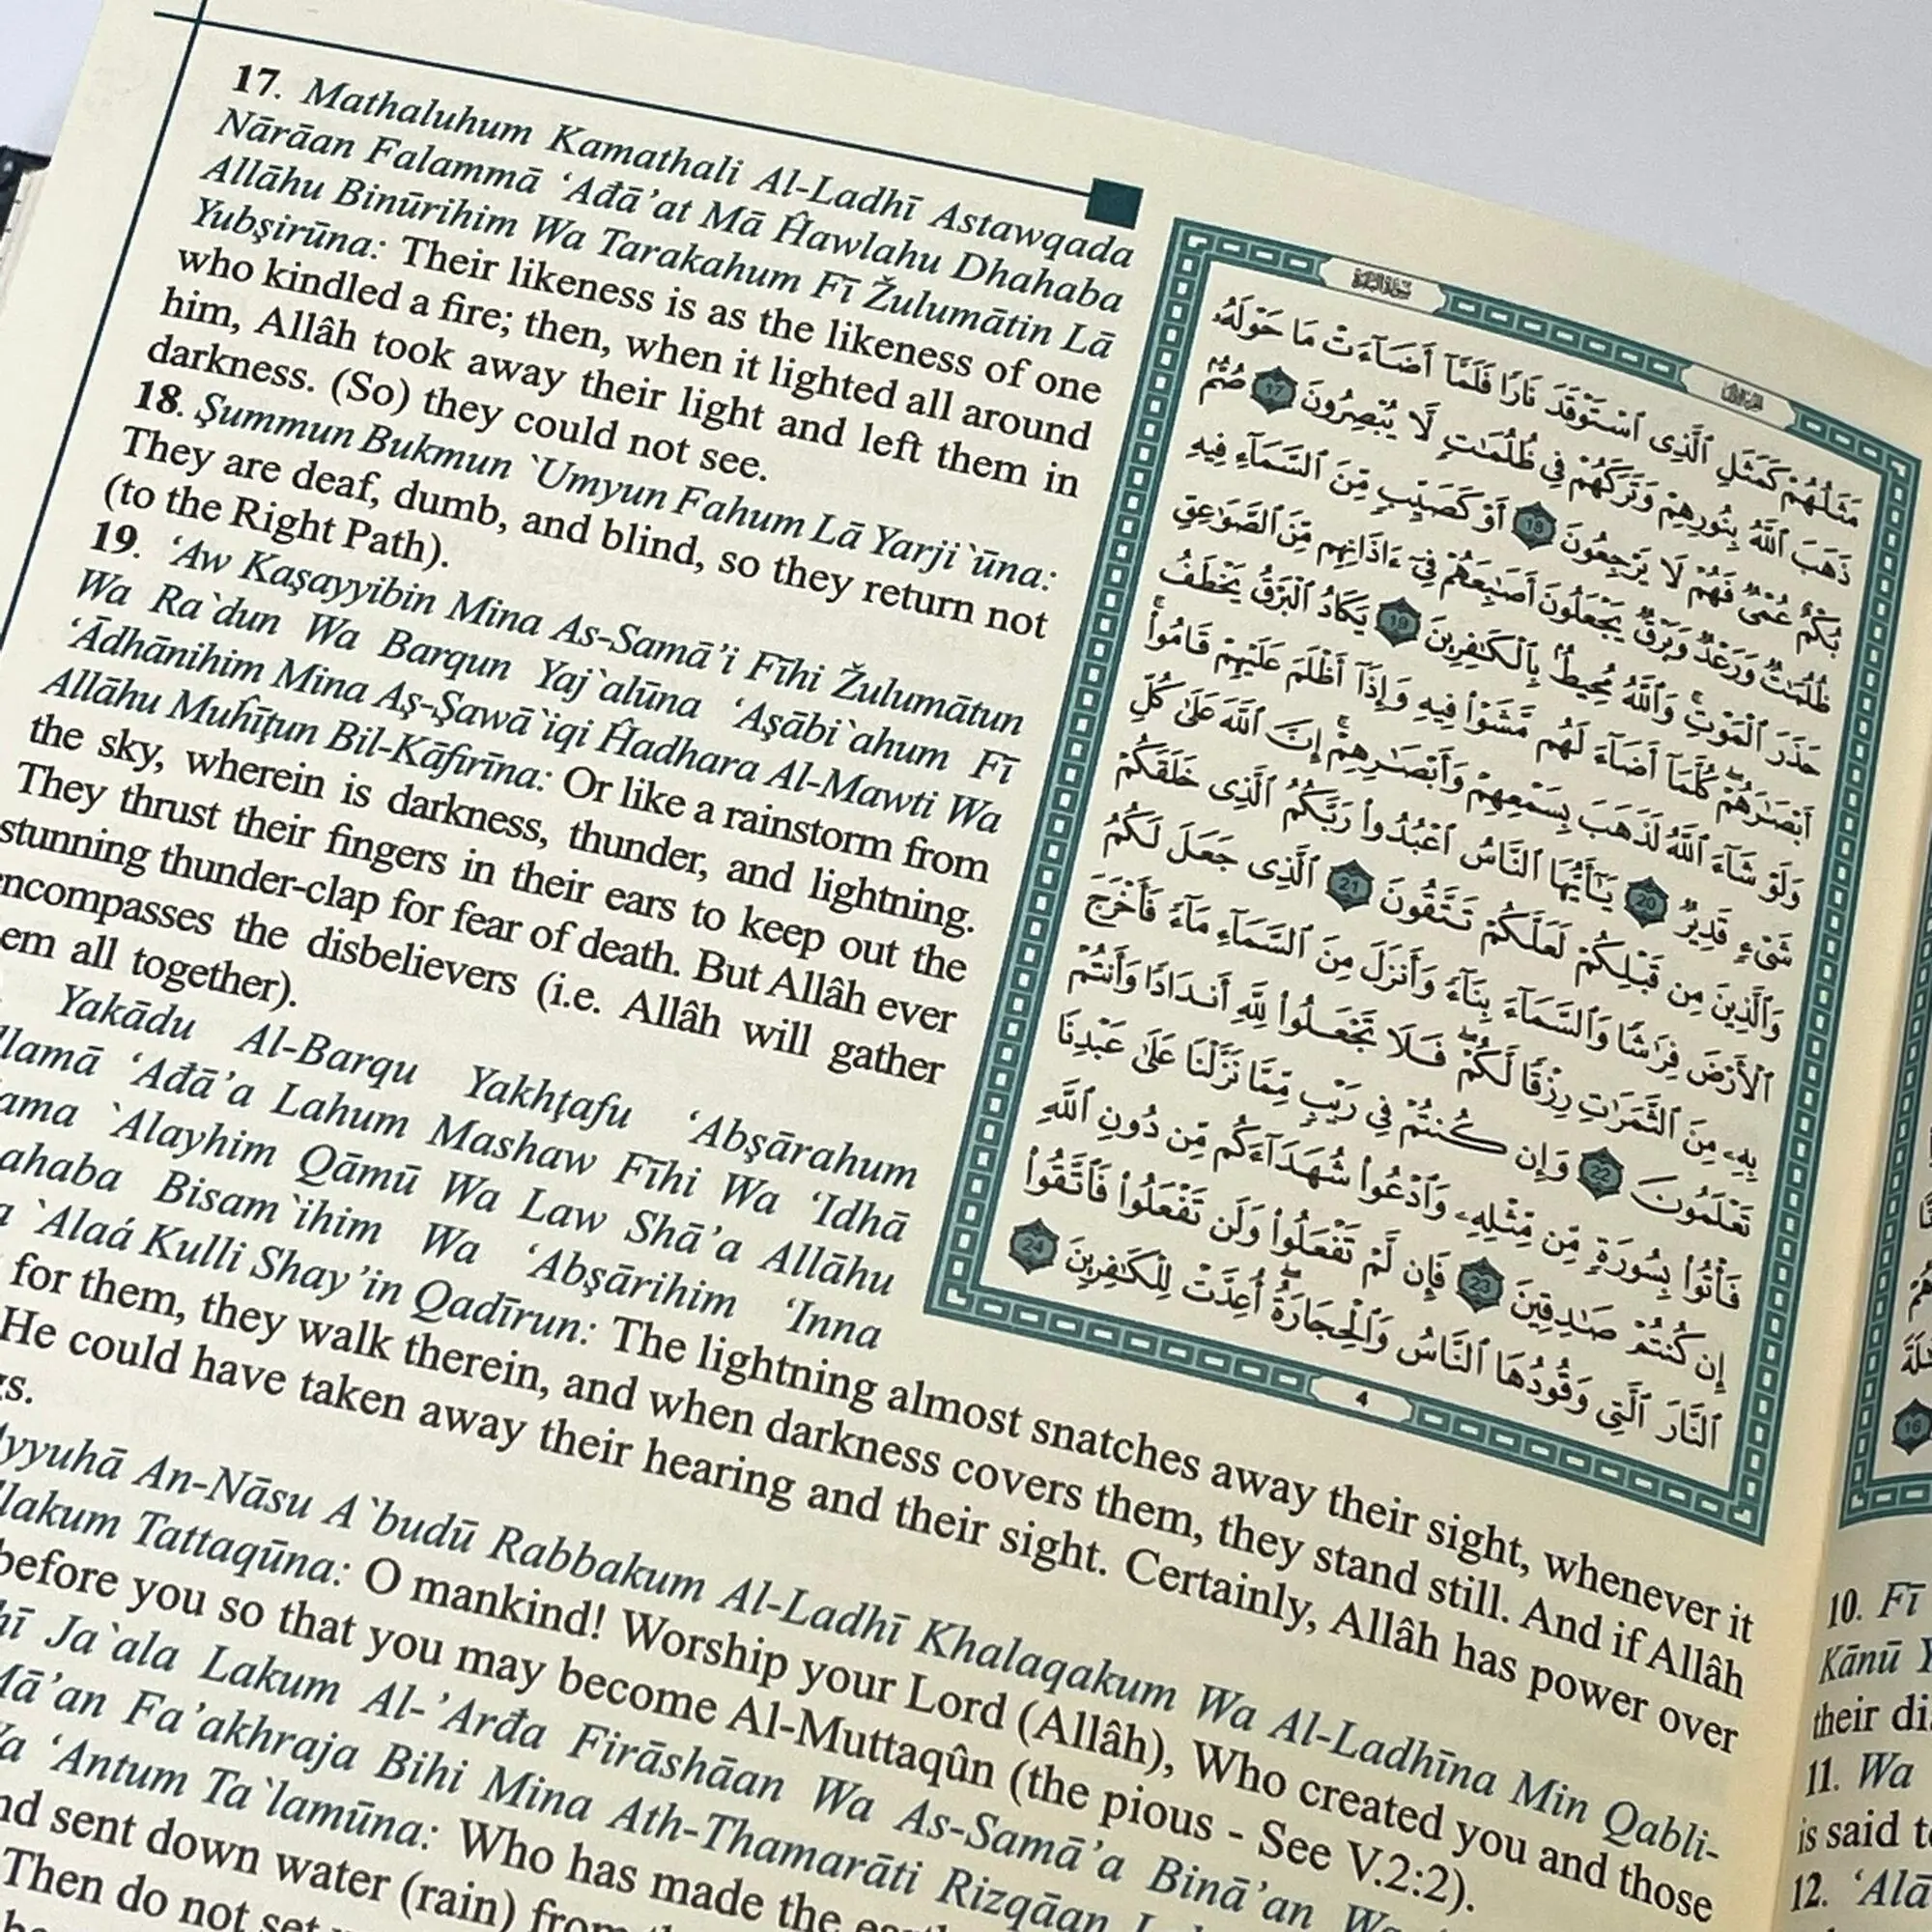 17. Mathaluhum Kamathali Al-Ladhī Astawqada
Nārāan Falammā ‘Ađā’at Mā Ĥawlahu Dhahaba
Allāhu Binūrihim Wa Tarakahum Fī Žulumātin Lā
Yubşirūna: Their likeness is as the likeness of one
who kindled a fire; then, when it lighted all around
him, Allâh took away their light and left them in
darkness. (So) they could not see.
18. Şummun Bukmun `Umyun Fahum Lā Yarji`ūna:
They are deaf, dumb, and blind, so they return not
(to the Right Path).
19. ‘Aw Kaşayyibin Mina As-Samā’i Fīhi Žulumātun
Wa Ra`dun Wa Barqun Yaj`alūna ‘Aşābi`ahum Fī
‘Ādhānihim Mina Aş-Şawā`iqi Ĥadhara Al-Mawti Wa
Allāhu Muĥīţun Bil-Kāfirīna: Or like a rainstorm from
the sky, wherein is darkness, thunder, and lightning.
They thrust their fingers in their ears to keep out the
stunning thunder-clap for fear of death. But Allâh ever
encompasses the disbelievers (i.e. Allâh will gather
em all together).
Yakādu Al-Barqu Yakhţafu ‘Abşārahum
llamā ‘Ađā’a Lahum Mashaw Fīhi Wa ‘Idhā
ama `Alayhim Qāmū Wa Law Shā’a Allāhu
ahaba Bisam`ihim Wa ‘Abşārihim ‘Inna
`Alaá Kulli Shay’in Qadīrun: The lightning almost snatches away their sight, whenever it
for them, they walk therein, and when darkness covers them, they stand still. And if Allâh
He could have taken away their hearing and their sight. Certainly, Allâh has power over
gs.
Ayyuhā An-Nāsu A`budū Rabbakum Al-Ladhī Khalaqakum Wa Al-Ladhīna Min Qabli-
llakum Tattaqūna: O mankind! Worship your Lord (Allâh), Who created you and those
before you so that you may become Al-Muttaqûn (the pious - See V.2:2).
hī Ja`ala Lakum Al-’Arđa Firāshāan Wa As-Samā’a Binā’an Wa
Mā’an Fa’akhraja Bihi Mina Ath-Thamarāti Rizqāan
Wa ‘Antum Ta`lamūna: Who has made the
nd sent down water (rain) from
Then do not set
مَثَلُهُمْ كَمَثَلِ ٱلَّذِى ٱسْتَوْقَدَ نَارًا فَلَمَّآ أَضَآءَتْ مَا حَوْلَهُۥ
ذَهَبَ ٱللَّهُ بِنُورِهِمْ وَتَرَكَهُمْ فِى ظُلُمَٰتٍ لَّا يُبْصِرُونَ 17 صُمٌّۢ
بُكْمٌ عُمْىٌ فَهُمْ لَا يَرْجِعُونَ 18 أَوْ كَصَيِّبٍ مِّنَ ٱلسَّمَآءِ فِيهِ
ظُلُمَٰتٌ وَرَعْدٌ وَبَرْقٌ يَجْعَلُونَ أَصَٰبِعَهُمْ فِىٓ ءَاذَانِهِم مِّنَ ٱلصَّوَٰعِقِ
حَذَرَ ٱلْمَوْتِ ۚ وَٱللَّهُ مُحِيطٌۢ بِٱلْكَٰفِرِينَ 19 يَكَادُ ٱلْبَرْقُ يَخْطَفُ
أَبْصَٰرَهُمْ ۖ كُلَّمَآ أَضَآءَ لَهُم مَّشَوْا۟ فِيهِ وَإِذَآ أَظْلَمَ عَلَيْهِمْ قَامُوا۟ ۚ
وَلَوْ شَآءَ ٱللَّهُ لَذَهَبَ بِسَمْعِهِمْ وَأَبْصَٰرِهِمْ ۚ إِنَّ ٱللَّهَ عَلَىٰ كُلِّ
شَىْءٍ قَدِيرٌ 20 يَٰٓأَيُّهَا ٱلنَّاسُ ٱعْبُدُوا۟ رَبَّكُمُ ٱلَّذِى خَلَقَكُمْ
وَٱلَّذِينَ مِن قَبْلِكُمْ لَعَلَّكُمْ تَتَّقُونَ 21 ٱلَّذِى جَعَلَ لَكُمُ
ٱلْأَرْضَ فِرَٰشًا وَٱلسَّمَآءَ بِنَآءً وَأَنزَلَ مِنَ ٱلسَّمَآءِ مَآءً فَأَخْرَجَ
بِهِۦ مِنَ ٱلثَّمَرَٰتِ رِزْقًا لَّكُمْ ۖ فَلَا تَجْعَلُوا۟ لِلَّهِ أَندَادًا وَأَنتُمْ
تَعْلَمُونَ 22 وَإِن كُنتُمْ فِى رَيْبٍ مِّمَّا نَزَّلْنَا عَلَىٰ عَبْدِنَا
فَأْتُوا۟ بِسُورَةٍ مِّن مِّثْلِهِۦ وَٱدْعُوا۟ شُهَدَآءَكُم مِّن دُونِ ٱللَّهِ
إِن كُنتُمْ صَٰدِقِينَ 23 فَإِن لَّمْ تَفْعَلُوا۟ وَلَن تَفْعَلُوا۟ فَٱتَّقُوا۟
ٱلنَّارَ ٱلَّتِى وَقُودُهَا ٱلنَّاسُ وَٱلْحِجَارَةُ ۖ أُعِدَّتْ لِلْكَٰفِرِينَ 24
4
16
10. Fī
Kānū
their di
11. Wa
is said t
12. ‘Alā